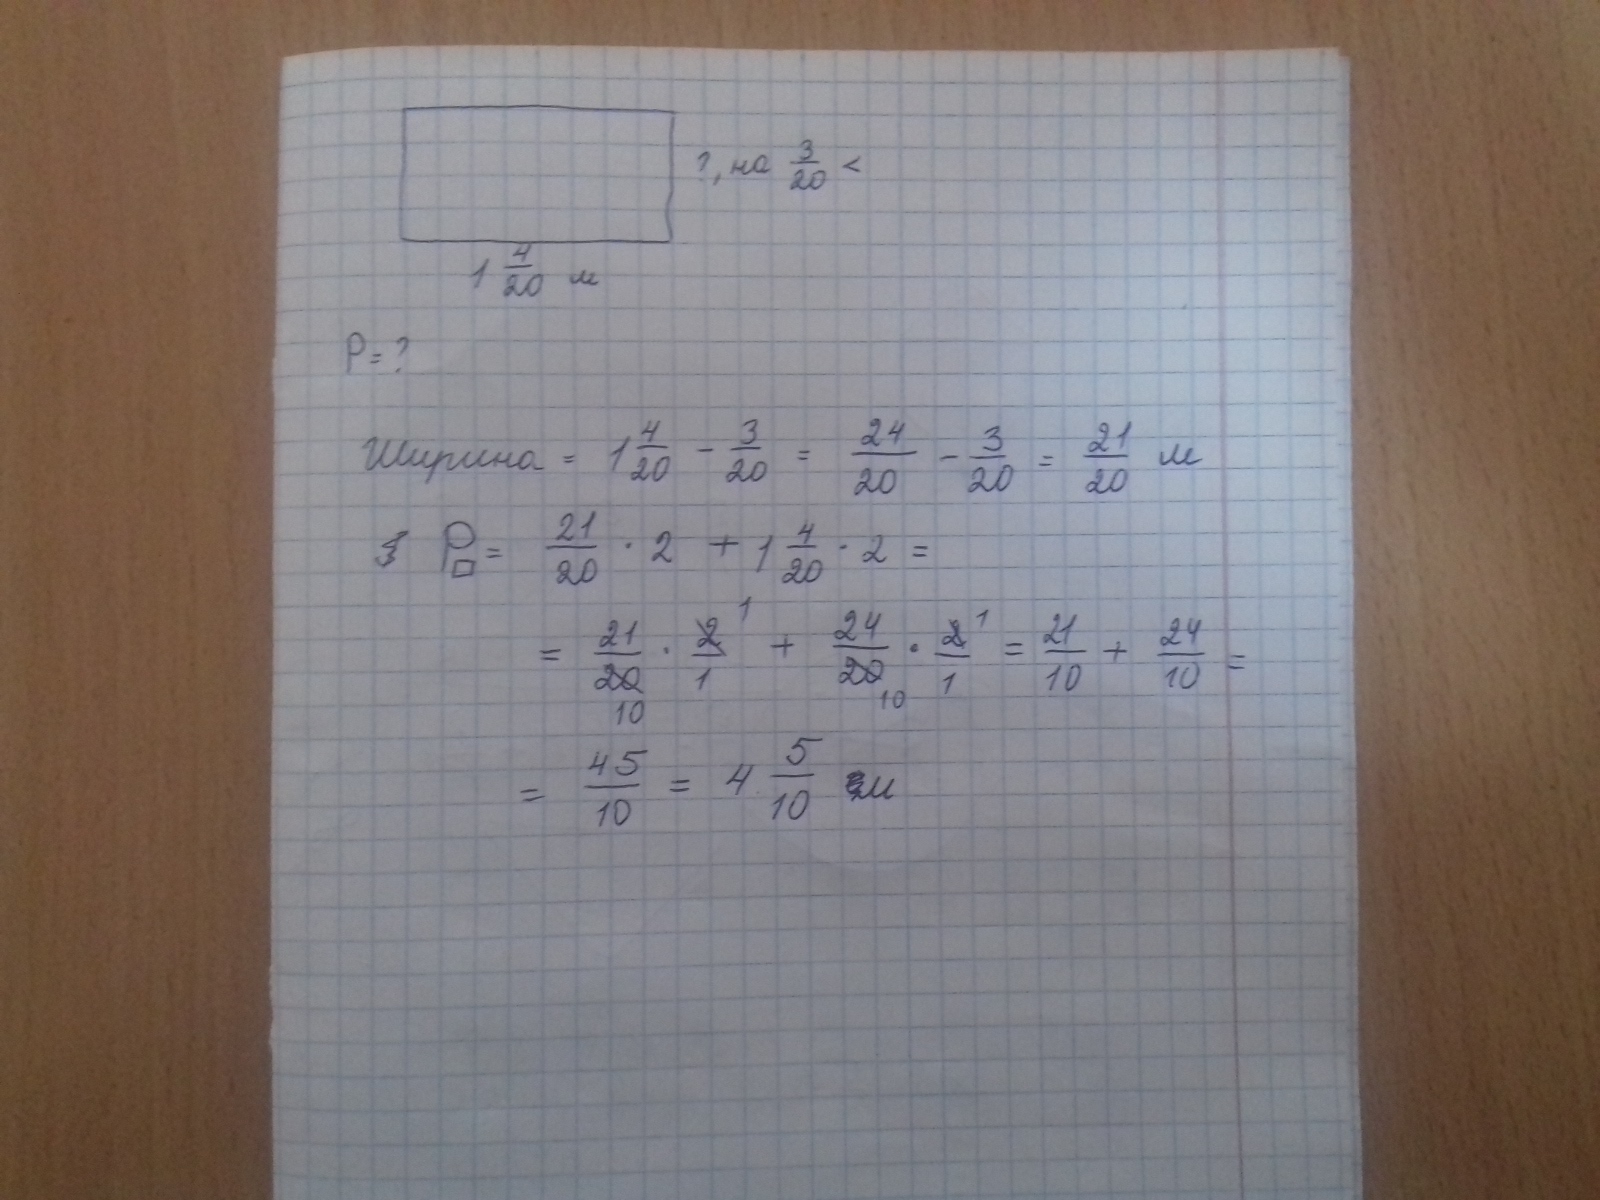 ?, на 3/20 <
1 4/20 м
P = ?
Ширина = 1 4/20 - 3/20 = 24/20 - 3/20 = 21/20 м
P□ = 21/20 · 2 + 1 4/20 · 2 =
= 21/20 10 · 2/1 1 + 24/20 10 · 2/1 1 = 21/10 + 24/10 =
= 45/10 = 4 5/10 м